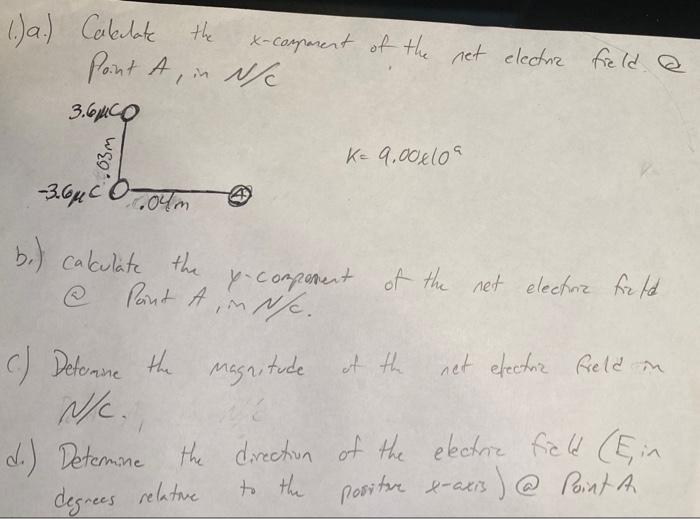 1.)a.) Calculate the x-component of the net electric field @
Point A, in N/C
3.6μC
.03m
K= 9.00x10⁹
-3.6μC
.04m
A
b.) calculate the y-component of the net electric field
@ Point A, in N/C.
c.) Determine the magnitude of the net electric field in
N/C.
d.) Determine the direction of the electric field (E, in
degrees relative to the positive x-axis) @ Point A